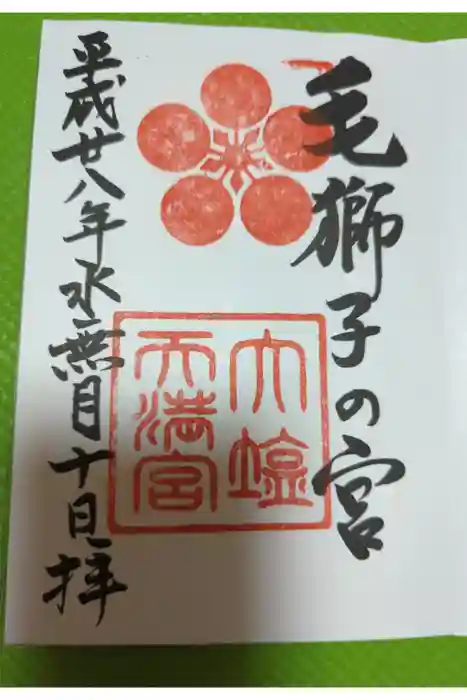 毛獅子の宮
大塩
天満宮
平成廿八年水無月十日拝